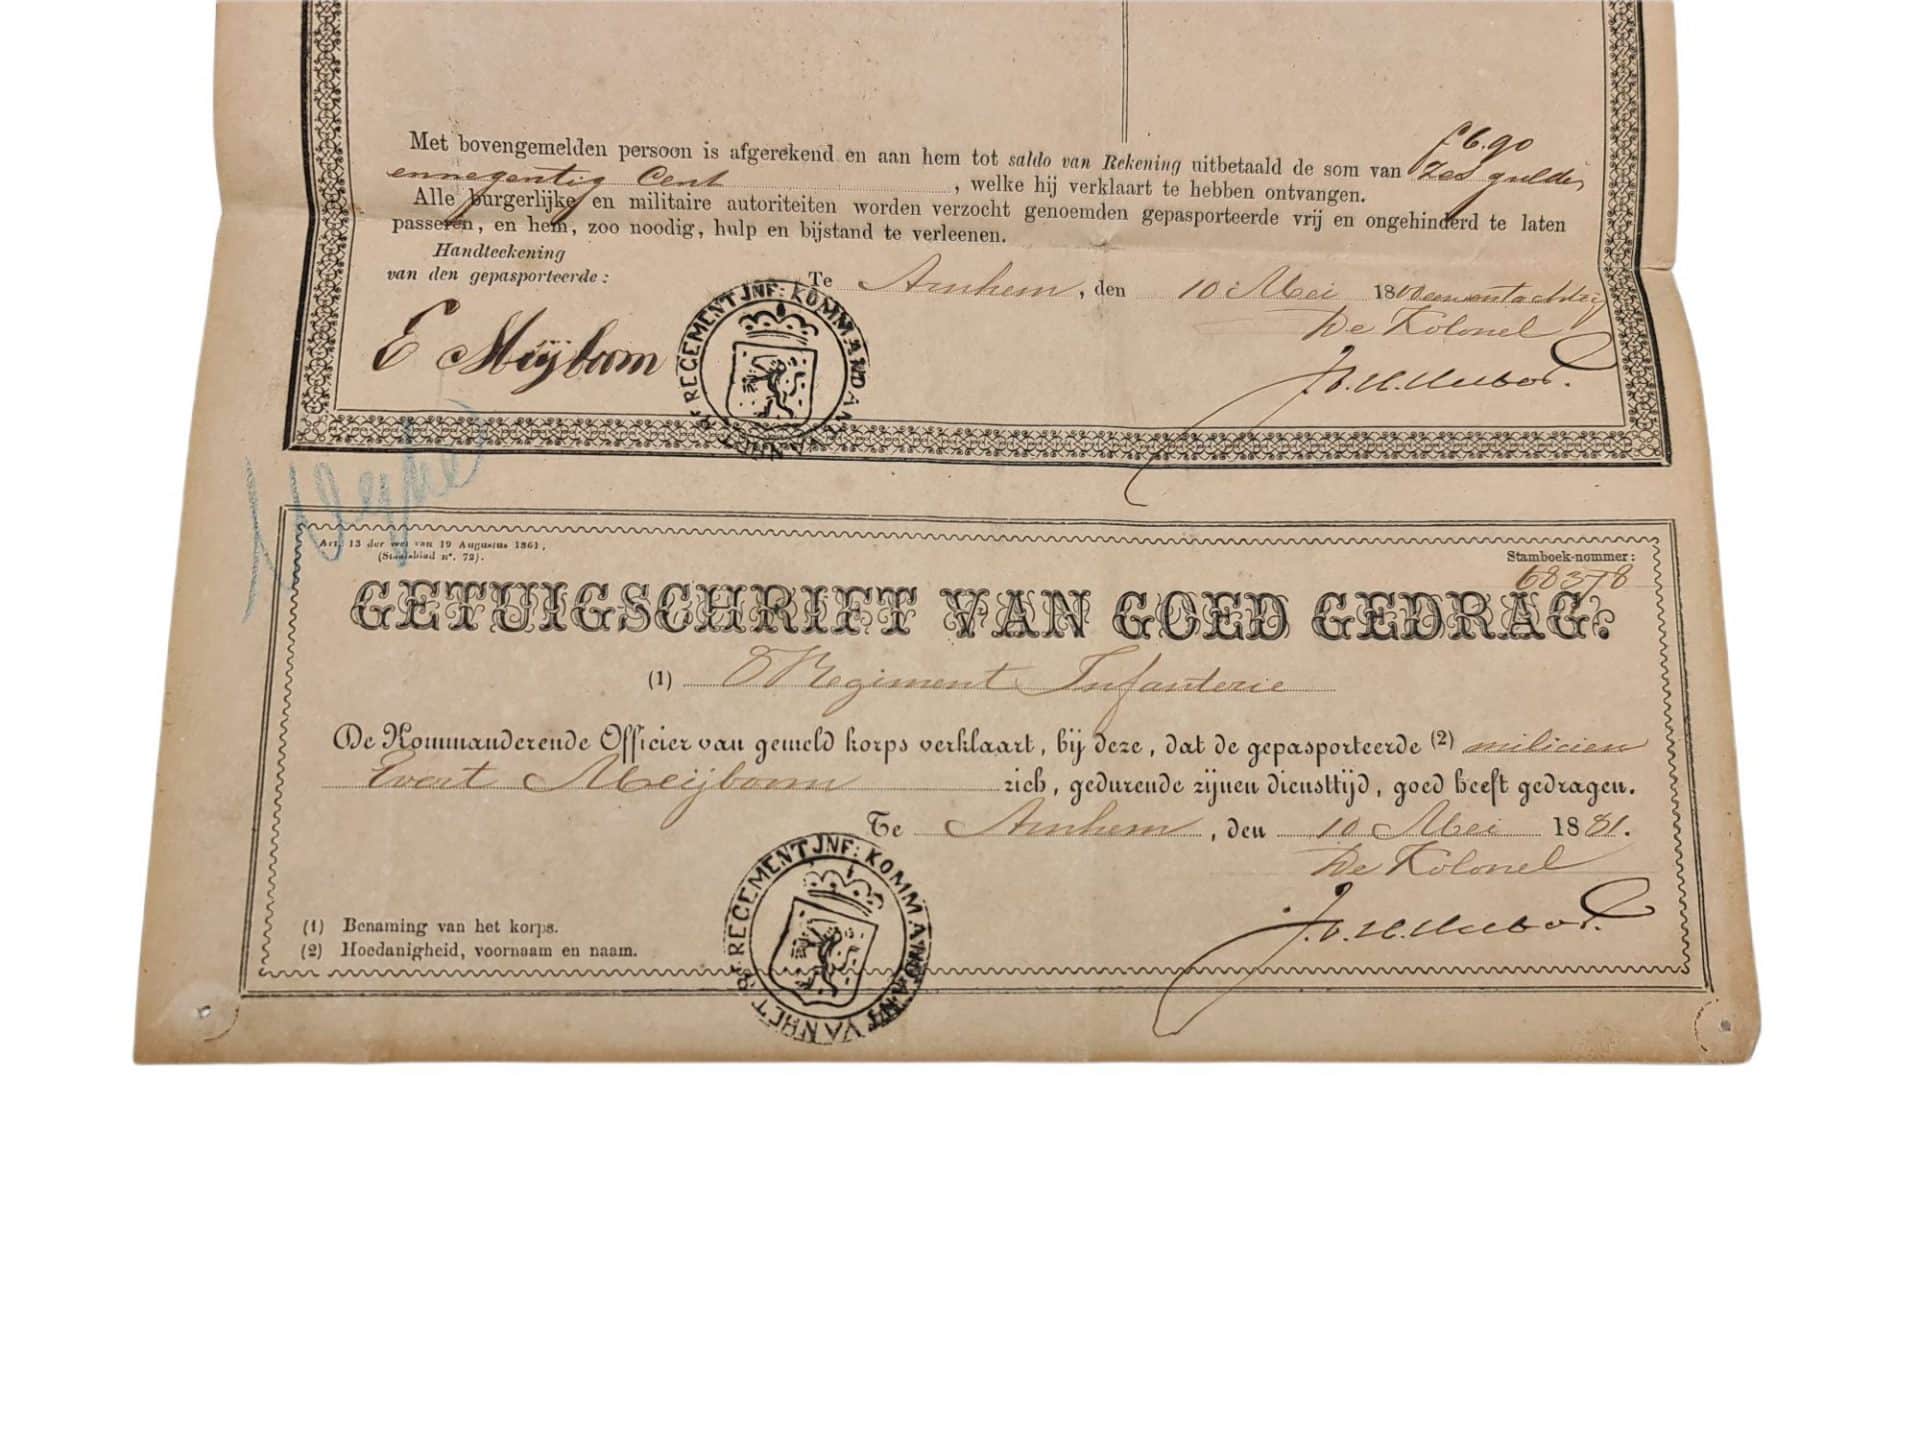 f 6.90
Met bovengemelden persoon is afgerekend en aan hem tot saldo van Rekening uitbetaald de som van Zes gulden
ennegentig Cent , welke hij verklaart te hebben ontvangen.
Alle burgerlijke en militaire autoriteiten worden verzocht genoemden gepasporteerde vrij en ongehinderd te laten
passeren, en hem, zoo noodig, hulp en bijstand te verleenen.
Handteekening
van den gepasporteerde:
Te Arnhem, den 10 Mei 18 eenentachtig
De Kolonel
E Meijboom
REGEMENT INF: KOMMANDANT VAN HET 8e
Art. 13 der wet van 19 Augustus 1861,
(Staatsblad n°. 72).
Stamboek-nommer:
68378
GETUIGSCHRIFT VAN GOED GEDRAG.
(1) 8 Regiment Infanterie
De Kommanderende Officier van gemeld korps verklaart, bij deze, dat de gepasporteerde (2) milicien
Evert Meijboom zich, gedurende zijnen diensttijd, goed heeft gedragen.
Te Arnhem, den 10 Mei 1881.
De Kolonel
REGEMENT INF: KOMMANDANT VAN HET 8e
(1) Benaming van het korps.
(2) Hoedanigheid, voornaam en naam.